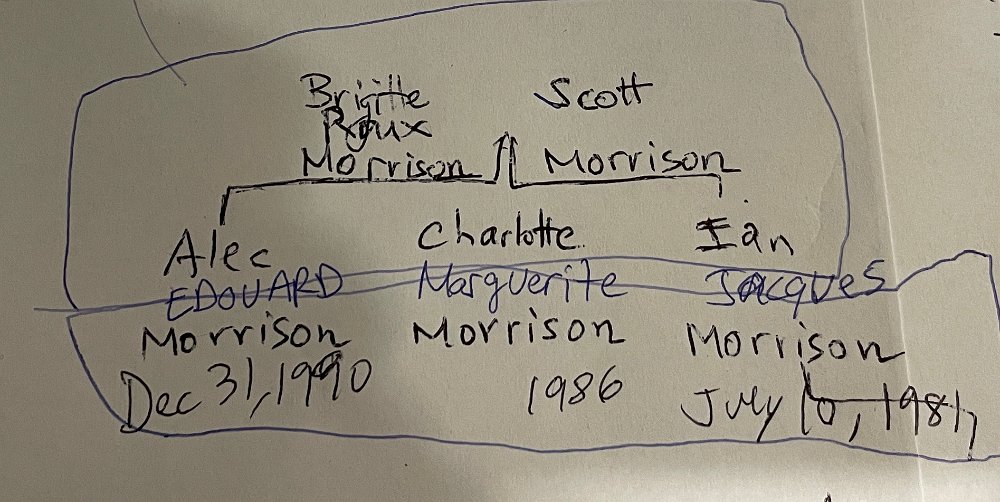 Brigitte Scott
Roux
Morrison Morrison
Alec Charlotte Ian
EDOUARD Marguerite Jacques
Morrison Morrison Morrison
Dec 31, 1990 1986 July 10, 1981